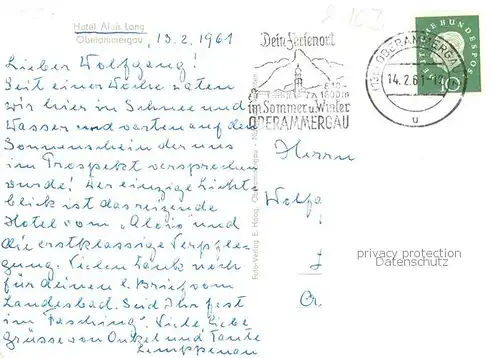 Hotel Alois Lang
Oberammergau
, 13.2.1961
Lieber Wolfgang!
Seit einer Woche waten
wir hier in Schnee und
Wasser und warten auf den
Sonnenschein der uns
im Prospekt versprochen
wurde! Der einzige Licht-
blick ist das reizende
Hotel vom "Alois" und
die erstklassige Verpfle-
gung. Vielen Dank noch
für deinen l. Brief vom
Landesbad. Seid Ihr fest
im "Fasching". Viele liebe
Grüsse von Onkel und Tante
Lemppenau
Foto-Verlag E. Haag, Oberammergau
Dein Ferienort
im Sommer u. Winter
OBERAMMERGAU
OBERAMMERGAU
14.2.61-12
u
DEUTSCHE BUNDESPOST
10
Herrn
Wolfg
Gr.
privacy protection
Datenschutz